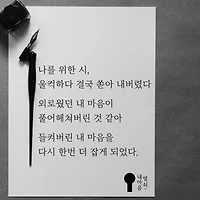 나를 위한 시,
울컥하다 결국 쏟아 내버렸다
외로웠던 내 마음이
풀어헤쳐버린 것 같아
들켜버린 내 마음을
다시 한번 더 잡게 되었다.
내 마음
열쇠.